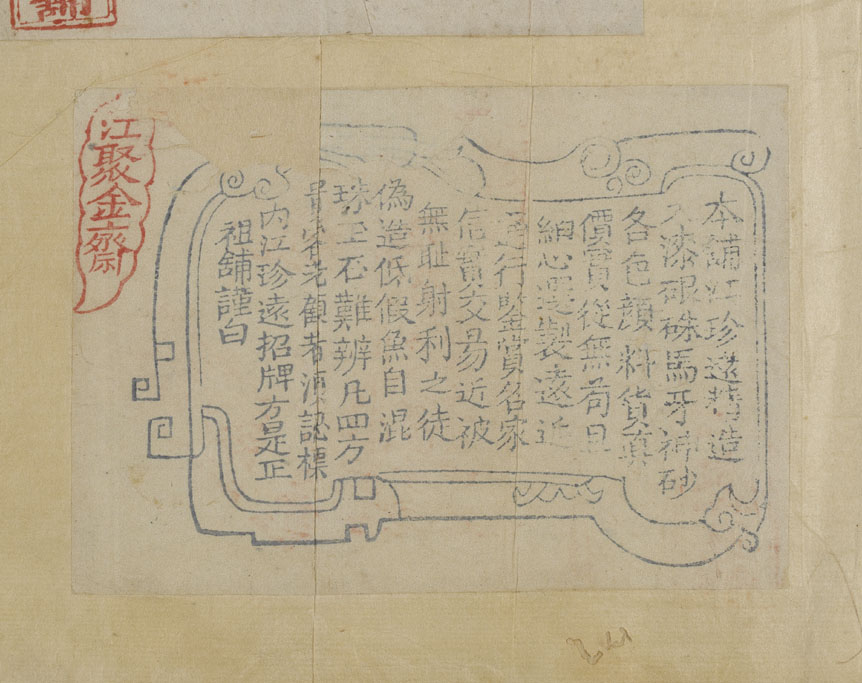 本舖江珍遠精造
漆硍硃馬牙神砂
各色顔料貨真
價實從無苟且
細心選製遠近
通行鍳賞名家
信實交易近被
無耻射利之徒
偽造低假魚目混
珠玉石難辨凡四方
貴客光顧者須認標
内江珍遠招牌方是正
祖舖謹白
江聚金齋